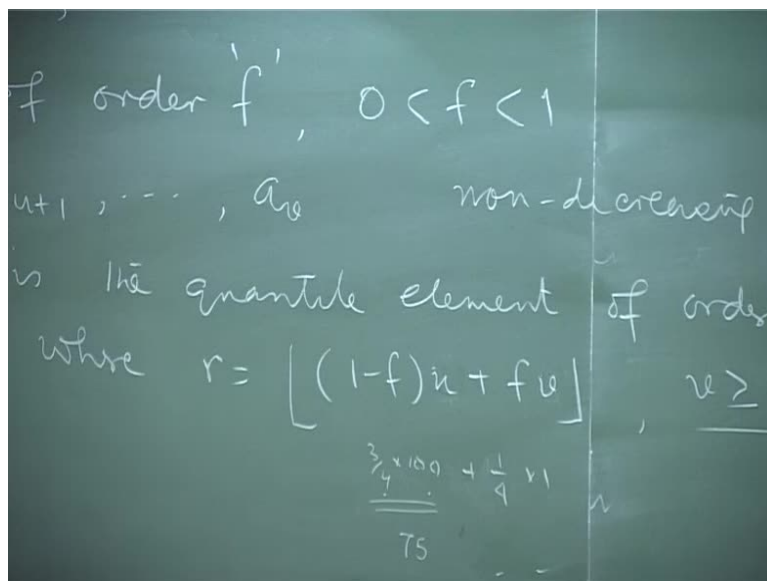 of order 'f', 0 < f < 1
u+1, ..., av non-decreasing
is the quantile element of order
where r = ⌊(1-f)u + fv⌋, v ≥
3/4 × 100 + 1/4 × 1
75